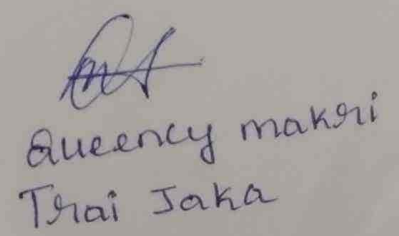 Queency makri
Trai Jaka